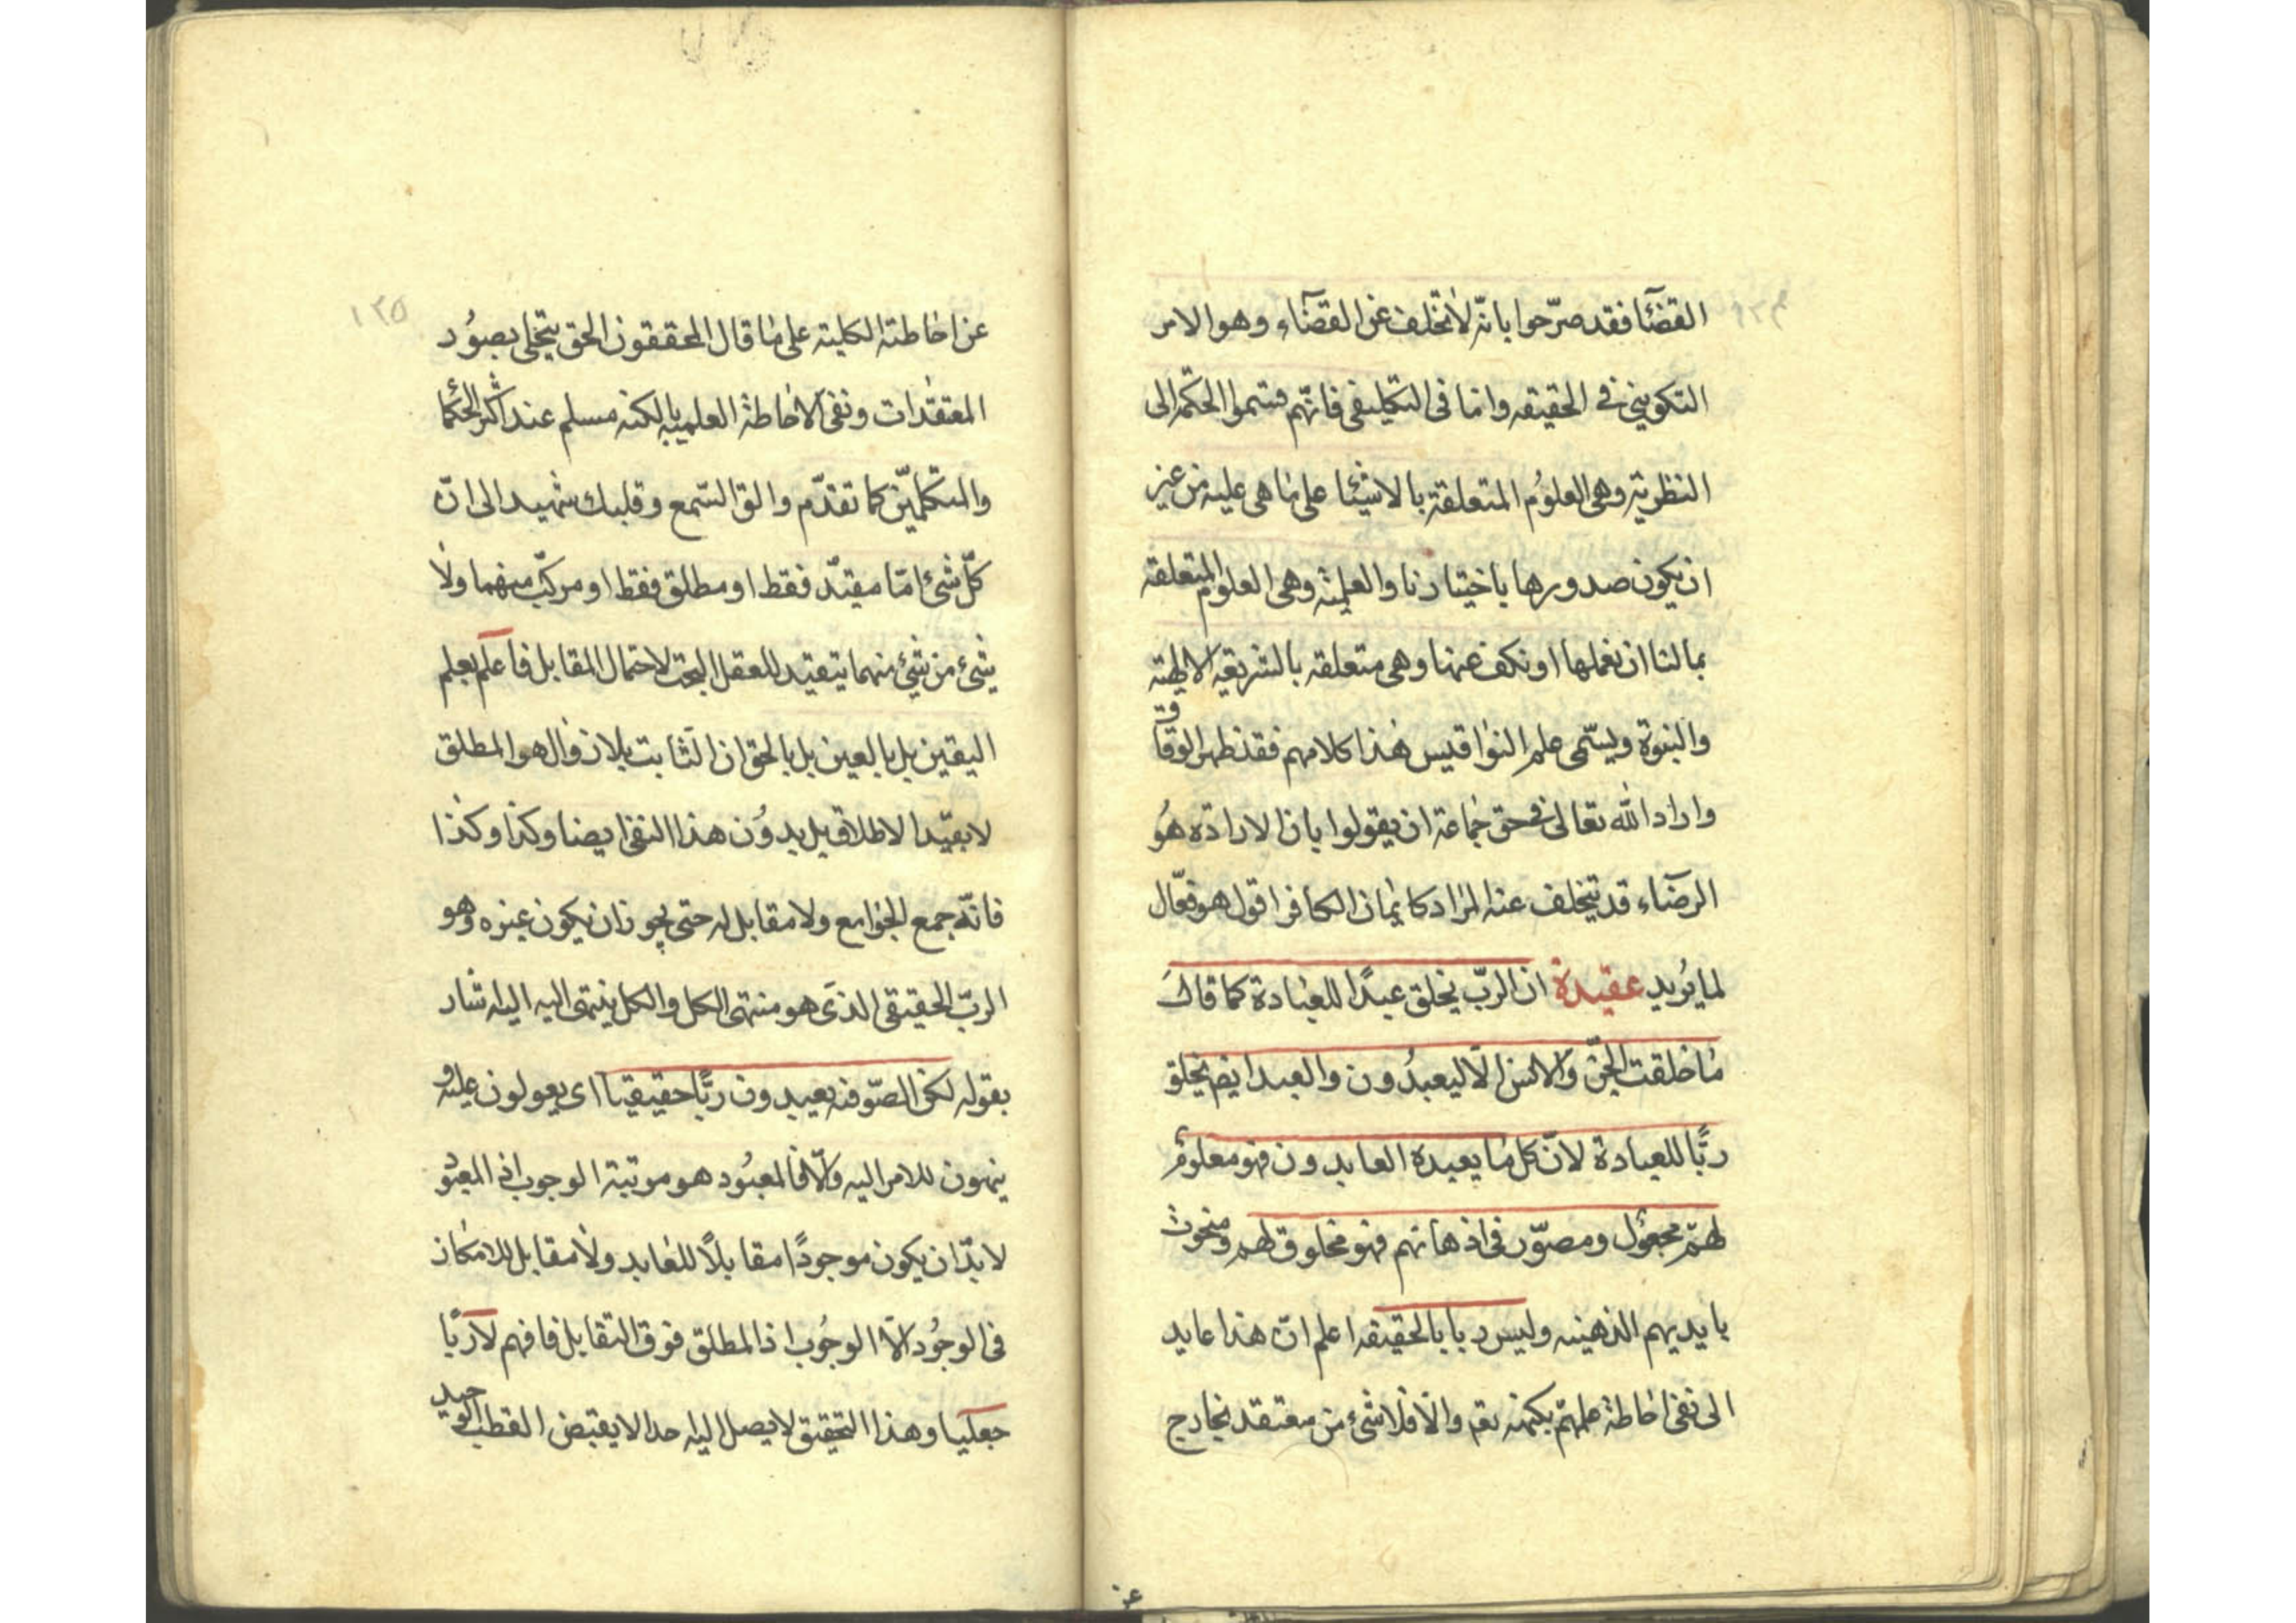 القضآء فقد صرّحوا بانّه لا تخلف عن القضآء وهو الامر
التكوينى فى الحقيقه واما فى التكليفى فانّهم قسموا الحكمة الى
النظرية وهى العلوم المتعلقة بالاشيئا على ما هى عليه من غير
ان يكون صدورها باختيارنا والعلميّة وهى العلوم المتعلقه
بما لنا ان نعملها او نكف عنها وهى متعلقه بالشريعة الالهيّة
والنبوة ويسمّى علم النواقيس هذا كلامهم فقد ظهر الوفاق
واراد الله تعالى فى حق جماعة ان يقولوا بان الارادة هو
الرضآء قد يتخلف عنه المراد كايمان الكافر اقول هو فعّال
لما يُريد عقيدة ان الربّ يخلق عبدًا للعبادة كما قال
ما خلقت الجنّ والانس الّا ليعبدُون والعبد ايضا يخلق
ربًّا للعبادة لانّ كل ما يعبده العابدون فهو معلوم
لهم مجعُول ومصوّر فى اذهانهم فهو مخلوق لهم ومنحوت
بايديهم الذهنيه وليس ربا بالحقيقه اعلم انّ هذا عايد
الى نفى احاطة علمهم بكنهه نعم والا فلا شئ من معتقد بخارج
١٣٥
عن احاطته الكلية على ما قال المحققون الحق يتجلى بصوُر
المعتقدات ونفى الاحاطة العلميه بالكنه مسلم عند اكثر الحكما
والمتكلمين كما تقدّم والق السّمع وقلبك شهيد الى انّ
كلّ شئ امّا مقيّد فقط او مطلق فقط او مركّب منهما ولا
شئ من شئ منهما يتقيد للعقل البحت لاحتمال المقابل فاعلم بعلم
اليقين بل بالعين بل بالحق ان الثابت بلا زوال هو المطلق
لا بقيد الاطلاق بل بدوُن هذا النفى ايضا وكذا وكذا
فانّه جمع الجوامع ولا مقابل له حتى يجوز ان يكون غيره وهو
الربّ الحقيقى الذى هو منتهى الكل والكل ينتهى اليه اليه اشار
بقوله لكن الصّوفيه يعبدون ربًّا حقيقيا اى يعولون عليه و
ينهون للامر اليه والّا فالمعبُود هو مرتبة الوجوب اذ المعبُود
لا بدّ ان يكون موجودًا مقابلًا للعابد ولا مقابل للامكان
فى الوجُود الّا الوجُوب اذ المطلق فوق التقابل فافهم لا ربًّا
جعليا وهذا التحقيق لا يصل اليه احد الا بفيض القطب الوحيد